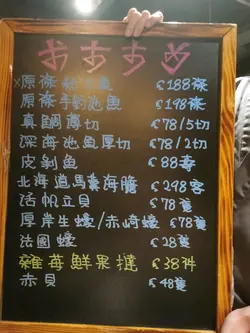 おすすめ
x原條 魚 $188條
原條手釣池魚 $198條
真鯛薄切 $78/5切
深海池魚厚切 $78/2切
皮剝魚 $88壽
北海道馬糞海膽 $298客
活帆立貝 $78隻
厚岸生蠔/赤崎蠔 $78隻
法國蠔 $28隻
雜莓鮮果撻 $38件
赤貝 $48隻